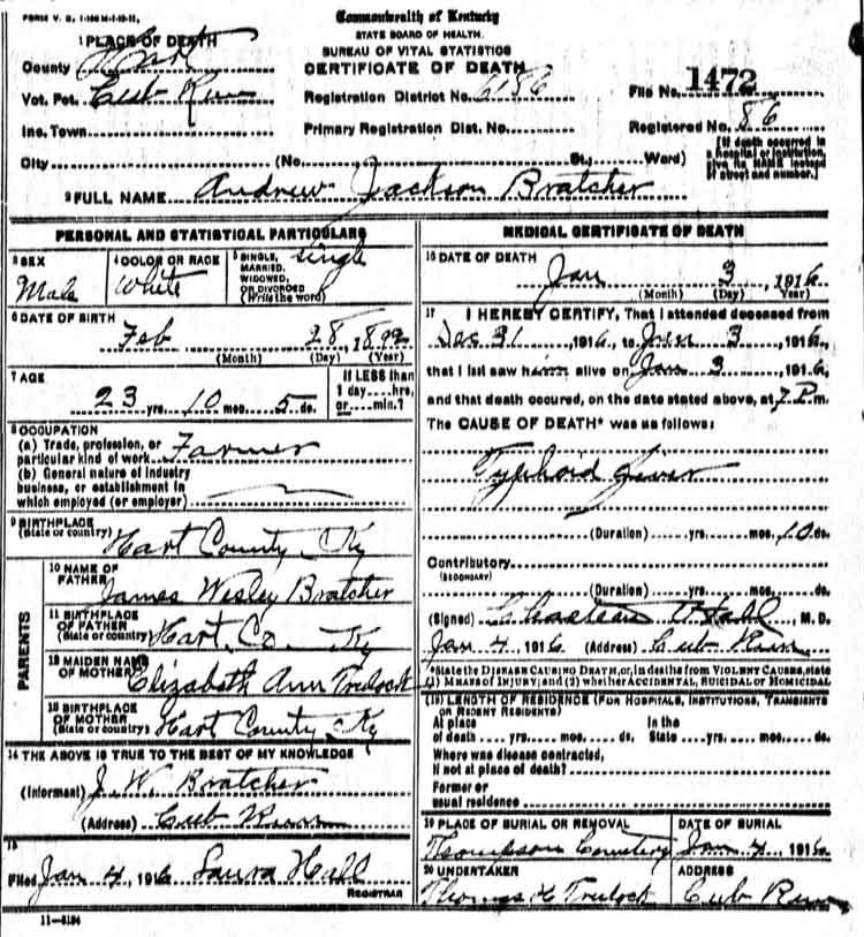 FORM V. S. 
Commonwealth of Kentucky
STATE BOARD OF HEALTH.
BUREAU OF VITAL STATISTICS
CERTIFICATE OF DEATH
1 PLACE OF DEATH
County Hart
Vot. Pct. Cub Run
Inc. Town
City (No. St., Ward)
Registration District No. 6186
Primary Registration Dist. No.
File No. 1472
Registered No. 86
[If death occurred in a hospital or institution, give its NAME instead of street and number.]
2 FULL NAME Andrew Jackson Bratcher
PERSONAL AND STATISTICAL PARTICULARS
3 SEX
Male
4 COLOR OR RACE
White
5 SINGLE, MARRIED, WIDOWED, OR DIVORCED (Write the word)
single
6 DATE OF BIRTH
Feb 28, 1892
(Month) (Day) (Year)
7 AGE
23 yrs. 10 mos. 5 ds.
If LESS than 1 day....hrs, or....min.?
8 OCCUPATION
(a) Trade, profession, or
particular kind of work Farmer
(b) General nature of industry
business, or establishment in
which employed (or employer)
9 BIRTHPLACE
(State or country) Hart County Ky
PARENTS
10 NAME OF
FATHER James Wesley Bratcher
11 BIRTHPLACE
OF FATHER
(State or country) Hart Co. Ky
12 MAIDEN NAME
OF MOTHER Elizabeth Ann Trulock
13 BIRTHPLACE
OF MOTHER
(State or country) Hart County Ky
14 THE ABOVE IS TRUE TO THE BEST OF MY KNOWLEDGE
(Informant) J. W. Bratcher
(Address) Cub Run
15
Filed Jan 4, 1916 Laura Hall
REGISTRAR
11-3184
MEDICAL CERTIFICATE OF DEATH
16 DATE OF DEATH
Jan 3, 1916
(Month) (Day) Year)
17 I HEREBY CERTIFY, That I attended deceased from
Dec 31, 1916, to Jan 3, 1916,
that I last saw him alive on Jan 3, 1916,
and that death occured, on the date stated above, at 7 P.m.
The CAUSE OF DEATH* was as follows:
Typhoid fever
(Duration) yrs. mos. 10 ds.
Contributory
(SECONDARY)
(Duration) yrs. mos. ds.
(Signed) Hall, M. D.
Jan 4, 1916 (Address) Cub Run
*State the DISEASE CAUSING DEATH, or, in deaths from VIOLENT CAUSES, state
(1) MEANS OF INJURY; and (2) whether ACCIDENTAL, SUICIDAL or HOMICIDAL
(18) LENGTH OF RESIDENCE (FOR HOSPITALS, INSTITUTIONS, TRANSIENTS
OR RECENT RESIDENTS)
At place In the
of death yrs. mos. ds. State yrs. mos. ds.
Where was disease contracted,
if not at place of death?
Former or
usual residence
19 PLACE OF BURIAL OR REMOVAL
Thompson Cemetery
DATE OF BURIAL
Jan 4, 1916
20 UNDERTAKER
Thomas H Trulock
ADDRESS
Cub Run